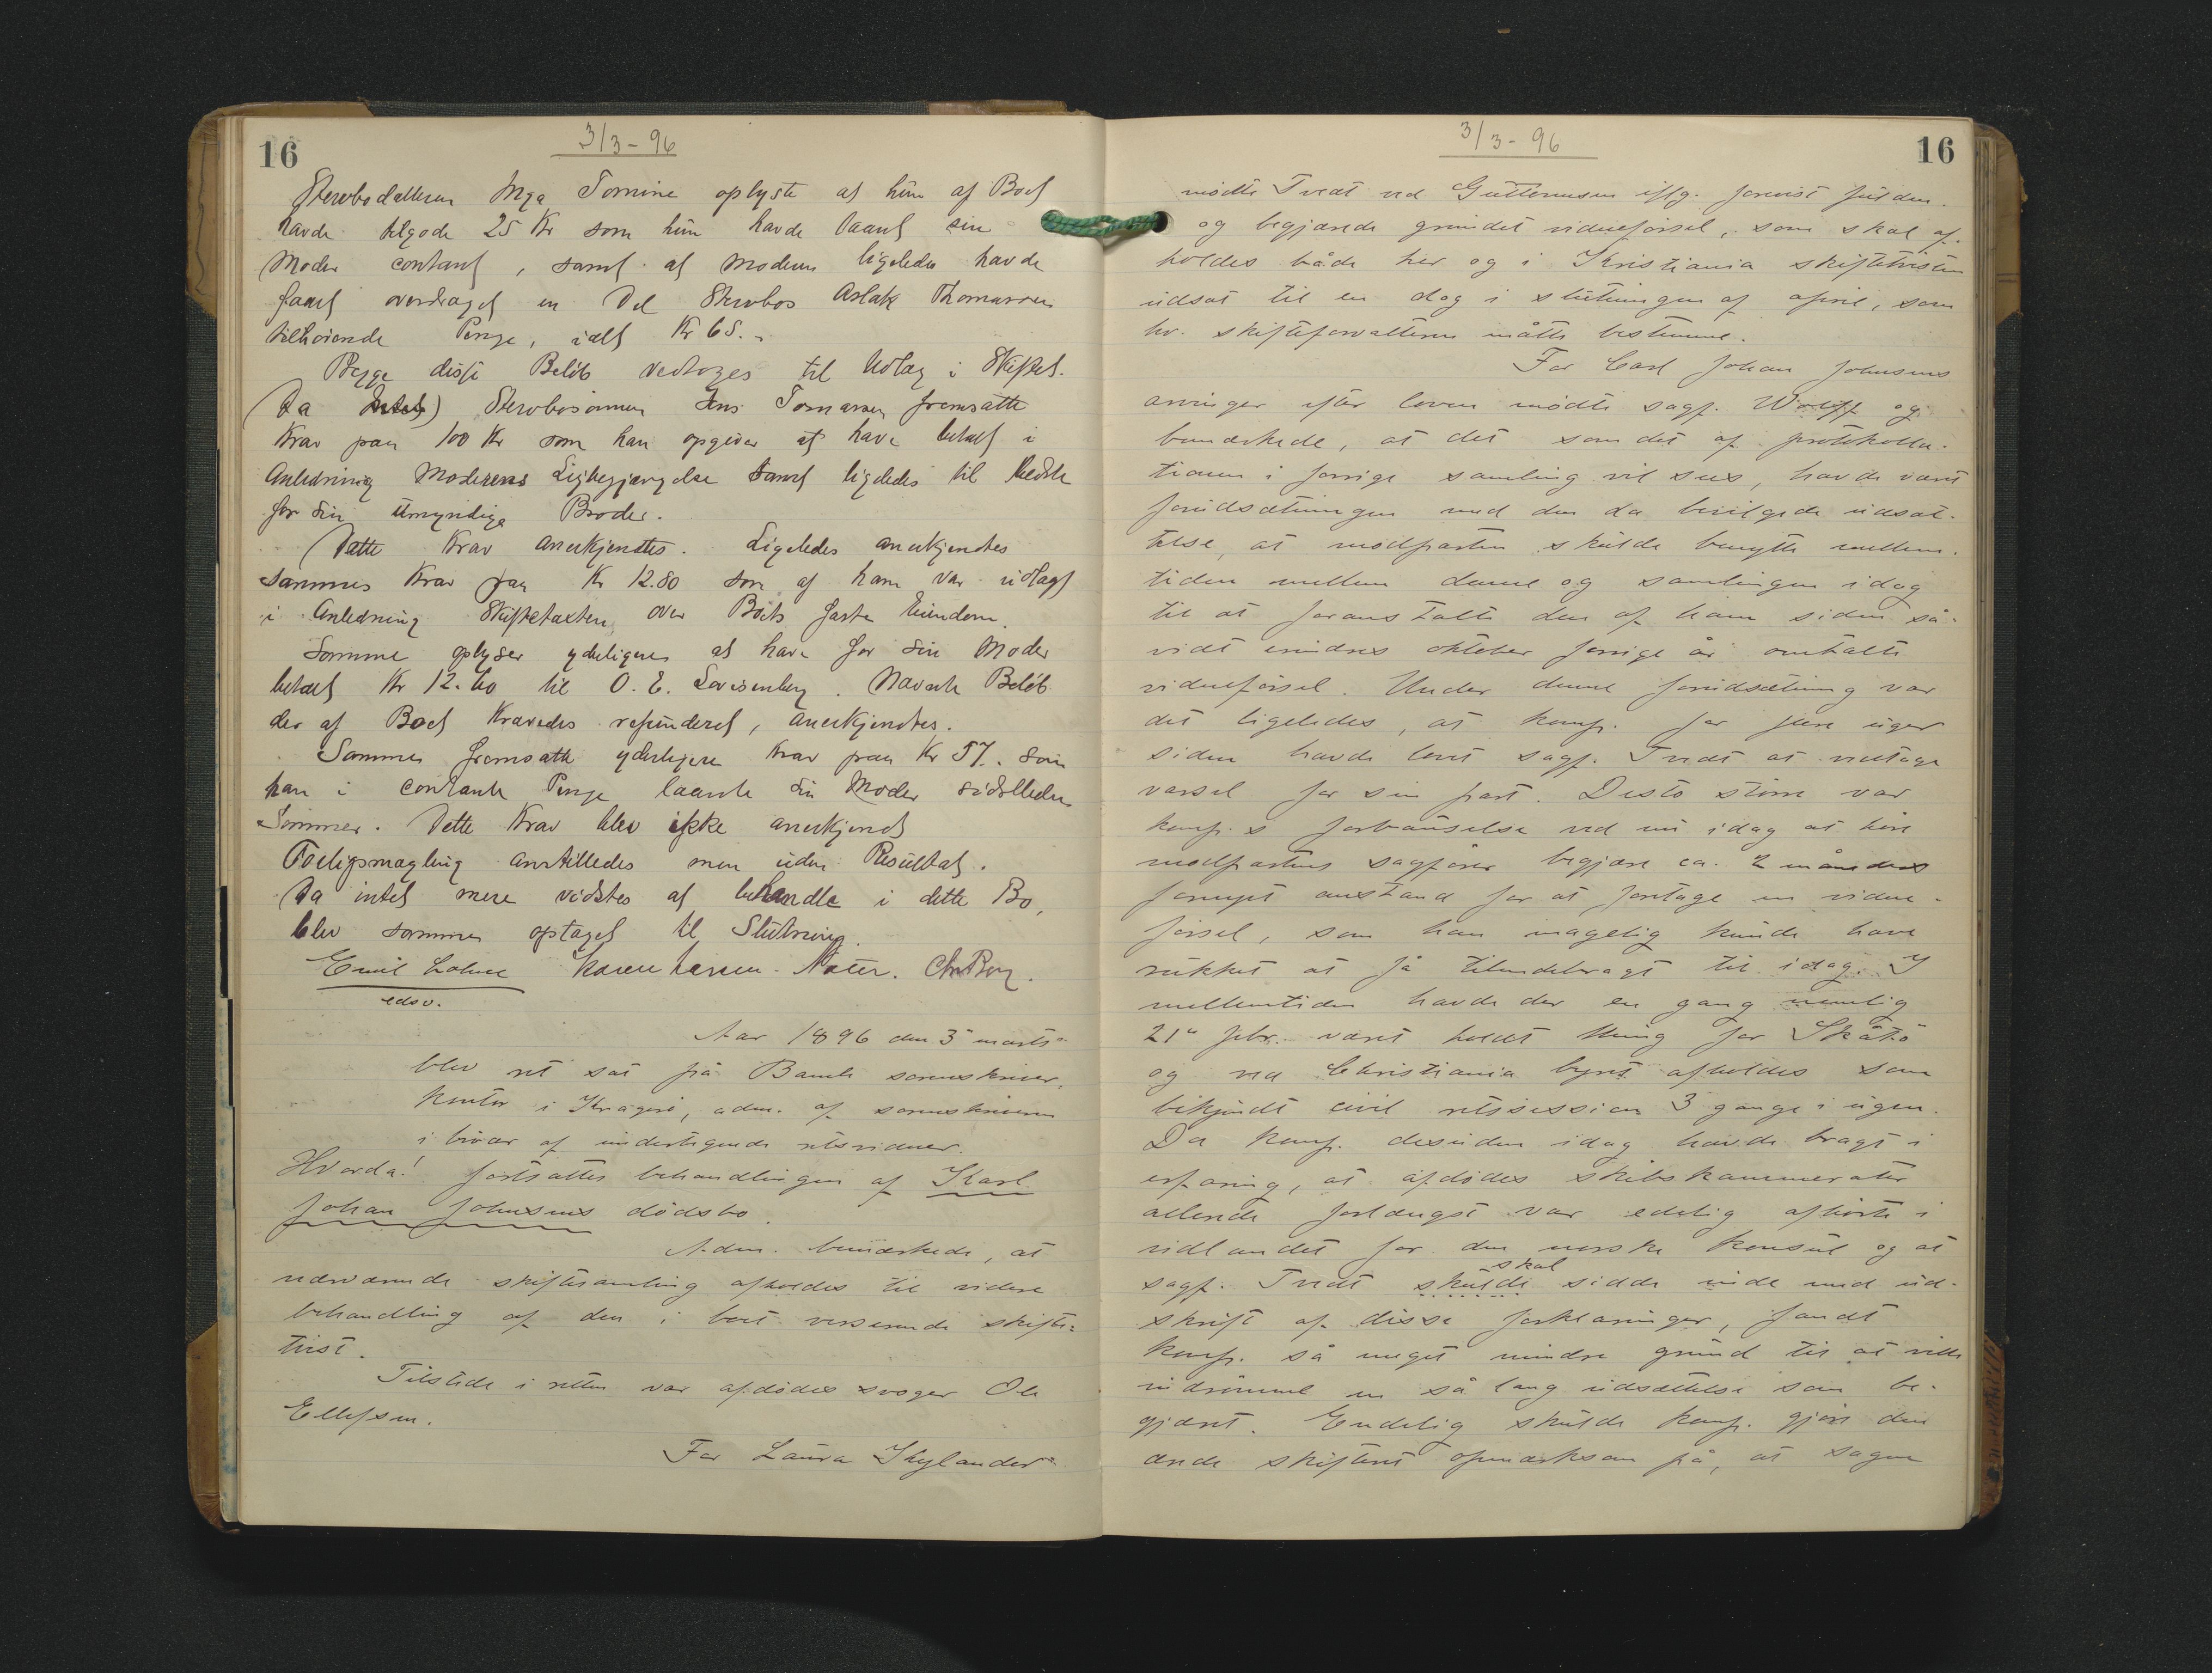 16
3/3-96
Stervbodatteren Inga Tomine oplyste at hun af Boet
havde tilgode 25 Kr som hun havde laant sin
Moder contant, samt at Moderen ligeledes havde
faaet overdraget en Del Stervbos Aslak Thomassen
tilhørende Penge, ialt Kr 65.-
Begge disse Beløb vedtoges til Udlæg i Skiftet.
(Da Intet) Stervbosønnen Jens Tomassen fremsatte
Krav paa 100 Kr som han opgiver at have betalt i
Anledning Moderens Ligbegjængelse samt ligeledes til Klæder
for sin umyndige Broder.
Dette Krav anerkjendtes. Ligeledes anerkjendtes
sammes Krav paa Kr 12.80 som af ham var udlagt
i Anledning Skiftetaxten over Boets faste Eiendom.
Samme oplyser yderligere at have for sin Moder
betalt Kr 12.60 til O. E. Lovisenberg. Nævnte Beløb
der af Boet Krævedes refunderet, anerkjendtes.
Samme fremsatte yderligere Krav paa Kr 57.- som
han i contante Penge laante sin Moder sidstleden
Sommer. Dette Krav blev ikke anerkjendt
Forligsmægling anstilledes men uden Resultat.
Da intet mere vidstes at behandle i dette Bo,
blev samme optaget til Slutning.
Emil Lohne Karen Larsen. Næter.
edsv.
Aar 1896 den 3 marts
blev ret sat på Bamle sorenskriver-
kontor i Kragerø, adm. af sorenskriveren
i bivær af undertegnede retsvidner.
Hvorda! fortsattes behandlingen af Karl
Johan Johnsens dødsbo.
Adm. bemærkede, at
nærværende skiftesamling afholdes til videre
behandling af den i boet verserende skifte-
tvist.
Tilstede i retten var afdødes svoger Ole
Ellefsen.
For Laura Thylander
3/3-96
16
mødte Tvedt ved Guttormsen iflg. forevist fuldm.
og begjærede grundet vidneførsel, som skal af-
holdes både her og i Kristiania skiftetvisten
udsat til en dag i slutningen af april, som
hr. skifteforvalteren måtte bestemme.
For Carl Johan Johnsens
arvinger efter loven mødte sagf. Wolff og
bemærkede, at det som det af protokolla-
tionen i forrige samling vil sees, havde været
forudsætningen med den da bevilgede udsæt-
telse, at modparten skulde benytte mellem-
tiden mellem denne og samlingen idag
til at foranstalte den af ham siden så-
vidt erindres oktober forrige år omtalte
vidneførsel. Under denne forudsætning var
det ligeledes, at komp. for flere uger
siden havde lovet sagf. Tvedt at vedtage
varsel for sin part. Desto større var
komp.s forbauselse ved nu idag at høre
modpartens sagfører begjære ca. 2 måneders
fornyet anstand for at foretage en vidne-
førsel, som han magelig kunde have
rukket at få tilendebragt til idag. I
mellemtiden havde der en gang nemlig
21de febr. været holdt thing for Skåtø
og ved Christiania byret afholdes som
bekjendt civil retssession 3 gange i ugen.
Da komp. desuden idag havde bragt i
erfaring, at afdødes skibskammerater
allerede forlængst var edelig afhørte i
udlandet for den norske konsul og at
skal
sagf. Tvedt skulde sidde inde med ud-
skrift af disse forklaringer, fandt
komp. så meget mindre grund til at ville
indrømme en så lang udsættelse som be-
gjæret. Endelig skulde komp. gjøre den
ærede skifteret opmærksom på, at sagen